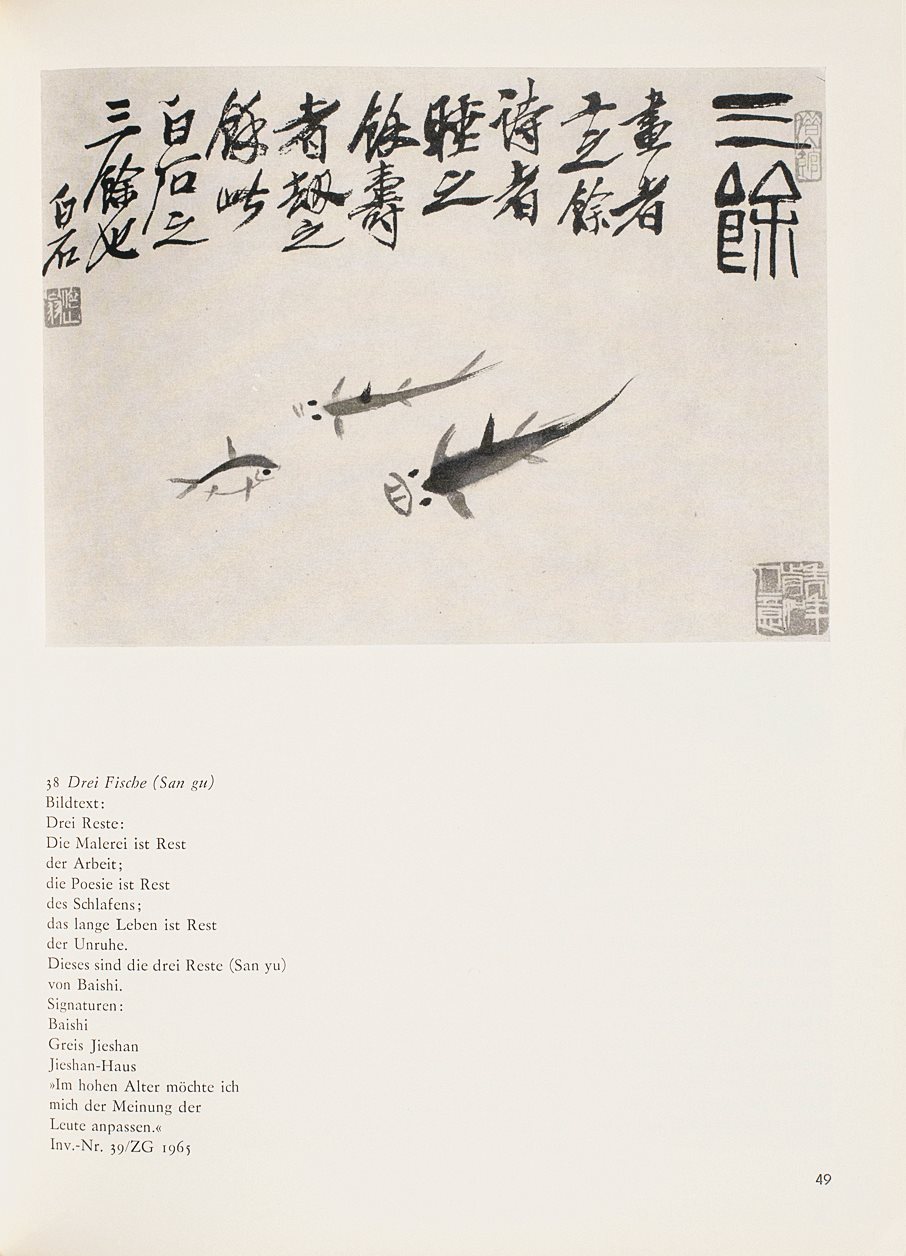 三餘
畫者
工之餘
詩者
睡之
餘壽
者劫之
餘此
白石之
三餘也
白石
借山翁
38 Drei Fische (San gu)
Bildtext:
Drei Reste:
Die Malerei ist Rest
der Arbeit;
die Poesie ist Rest
des Schlafens;
das lange Leben ist Rest
der Unruhe.
Dieses sind die drei Reste (San yu)
von Baishi.
Signaturen:
Baishi
Greis Jieshan
Jieshan-Haus
»Im hohen Alter möchte ich
mich der Meinung der
Leute anpassen.«
Inv.-Nr. 39/ZG 1965
49